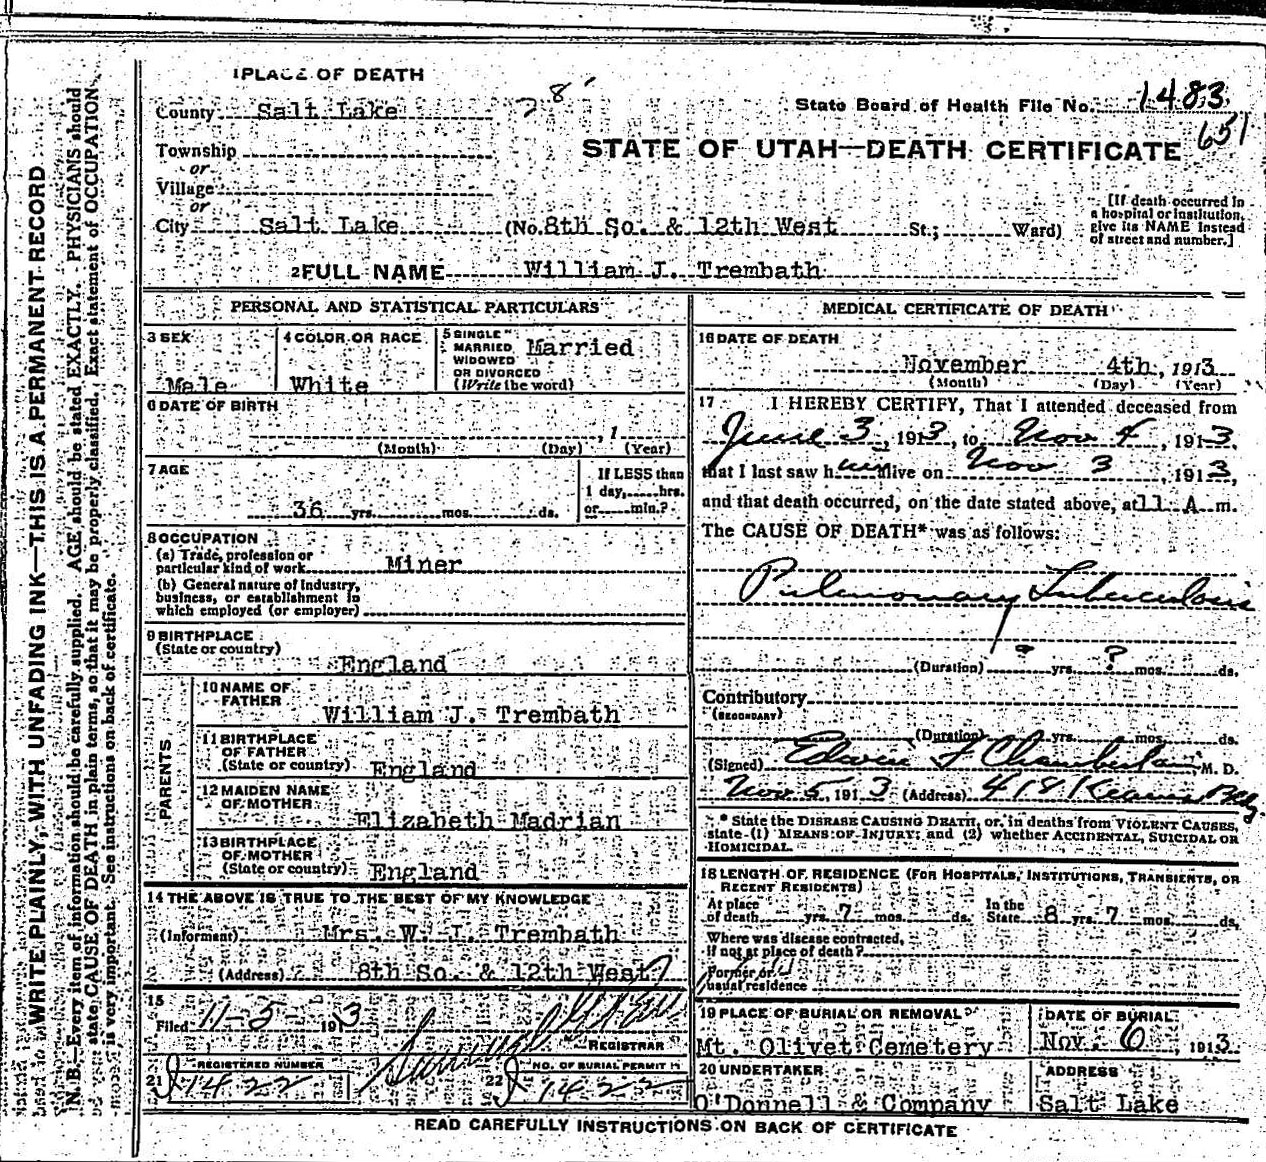 1 PLACE OF DEATH
County Salt Lake
State Board of Health File No. 1483
651
Township
or
Village
or
STATE OF UTAH—DEATH CERTIFICATE
City Salt Lake (No. 8th So. & 12th West St.; Ward)
[If death occurred in a hospital or institution, give its NAME instead of street and number.]
2 FULL NAME William J. Trembath
PERSONAL AND STATISTICAL PARTICULARS
3 SEX
Male
4 COLOR OR RACE
White
5 SINGLE
MARRIED
WIDOWED
OR DIVORCED
(Write the word)
Married
6 DATE OF BIRTH
, 1
(Month) (Day) (Year)
7 AGE
36 yrs. mos. ds.
If LESS than
1 day, hrs.
or min.?
8 OCCUPATION
(a) Trade, profession or
particular kind of work Miner
(b) General nature of Industry,
business, or establishment in
which employed (or employer)
9 BIRTHPLACE
(State or country)
England
PARENTS
10 NAME OF
FATHER
William J. Trembath
11 BIRTHPLACE
OF FATHER
(State or country) England
12 MAIDEN NAME
OF MOTHER
Elizabeth Madrian
13 BIRTHPLACE
OF MOTHER
(State or country) England
14 THE ABOVE IS TRUE TO THE BEST OF MY KNOWLEDGE
(Informant) Mrs. W. J. Trembath
(Address) 8th So. & 12th West
15
Filed 11-5 1913
REGISTRAR
REGISTERED NUMBER
21 1422
NO. OF BURIAL PERMIT
22 1422
MEDICAL CERTIFICATE OF DEATH
16 DATE OF DEATH
November 4th, 1913
(Month) (Day) (Year)
17 I HEREBY CERTIFY, That I attended deceased from
June 3, 1913, to Nov 4, 1913,
that I last saw him alive on Nov 3, 1913,
and that death occurred, on the date stated above, at 11 A m.
The CAUSE OF DEATH* was as follows:
Pulmonary Tuberculosis
(Duration) ? yrs. ? mos. ds.
Contributory
(SECONDARY)
(Duration) yrs. mos. ds.
(Signed) Edwin F Chamberlain M. D.
Nov 5, 1913 (Address) 418 Kearns Bldg
* State the DISEASE CAUSING DEATH, or, in deaths from VIOLENT CAUSES,
state (1) MEANS OF INJURY; and (2) whether ACCIDENTAL, SUICIDAL OR
HOMICIDAL.
18 LENGTH OF RESIDENCE (FOR HOSPITALS, INSTITUTIONS, TRANSIENTS, OR
RECENT RESIDENTS)
At place
of death yrs. 7 mos. ds. In the
State 8 yrs. 7 mos. ds.
Where was disease contracted,
if not at place of death?
Former or
usual residence
19 PLACE OF BURIAL OR REMOVAL
Mt. Olivet Cemetery
DATE OF BURIAL
Nov. 6, 1913
20 UNDERTAKER
O'Donnell & Company
ADDRESS
Salt Lake
READ CAREFULLY INSTRUCTIONS ON BACK OF CERTIFICATE
WRITE PLAINLY, WITH UNFADING INK—THIS IS A PERMANENT RECORD
N. B.—Every item of information should be carefully supplied. AGE should be stated EXACTLY. PHYSICIANS should
state CAUSE OF DEATH in plain terms, so that it may be properly classified. Exact statement of OCCUPATION
is very important. See instructions on back of certificate.